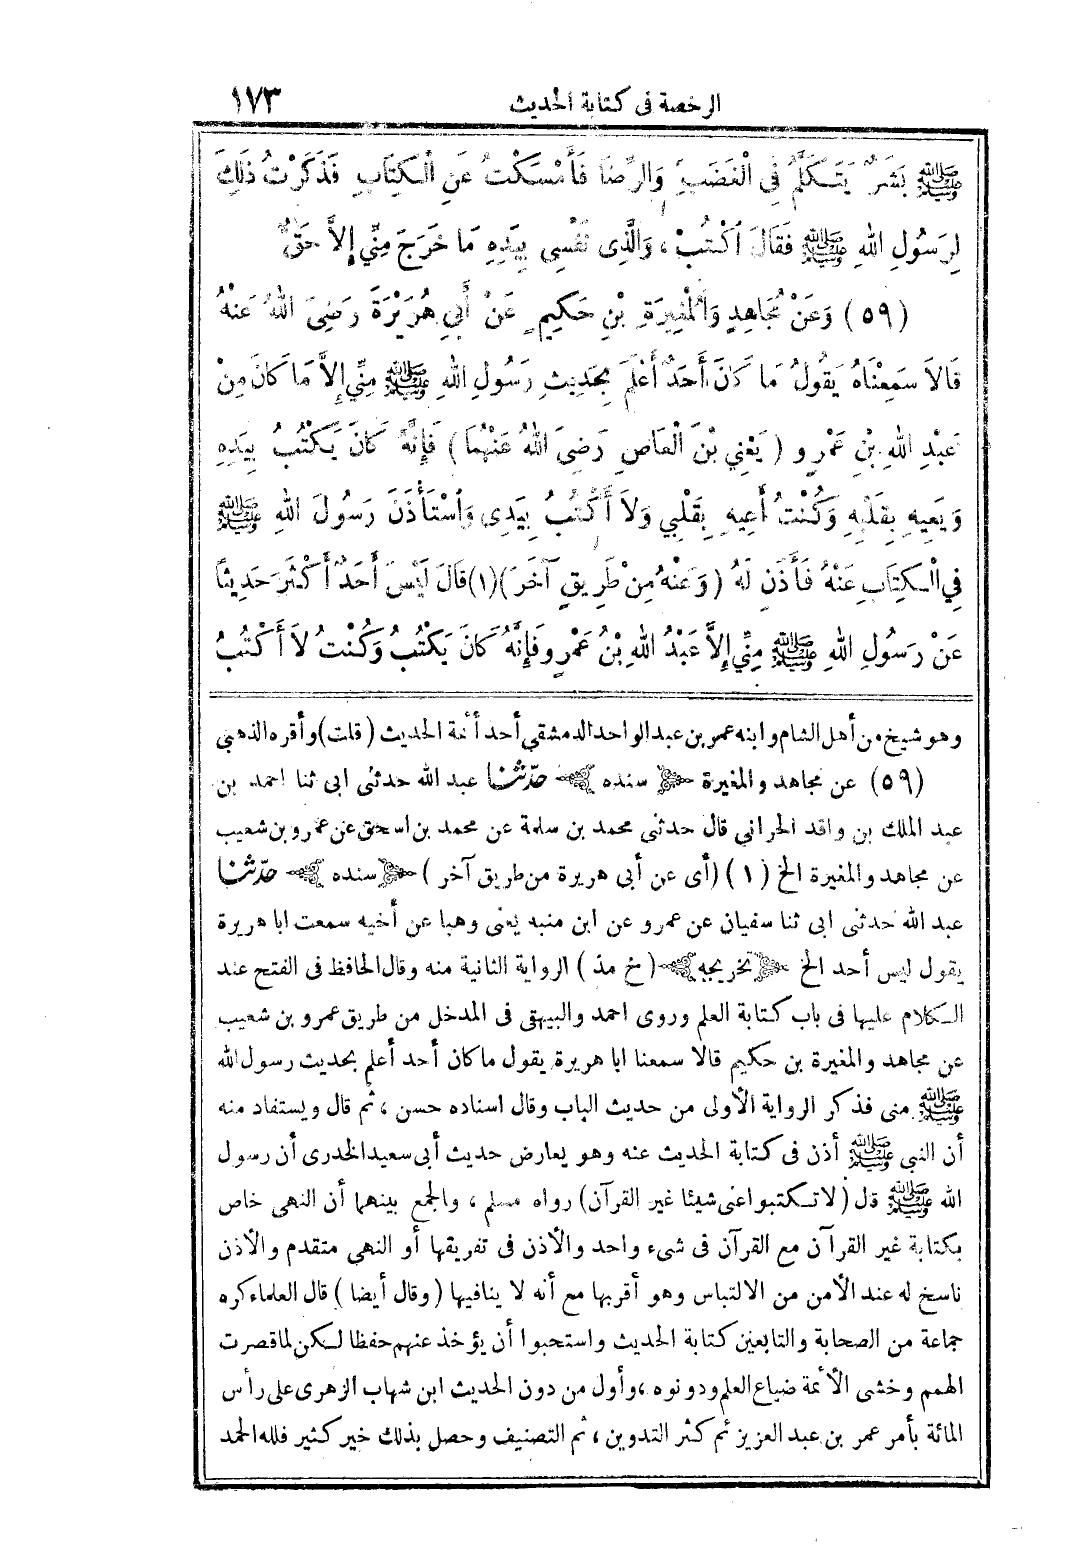 الرخصة فى كتابة الحديث ١٧٣
ﷺ بَشَرٌ يَتَكَلَّمُ فِى الْغَضَبِ وَالرِّضَا فَأَمْسَكْتُ عَنِ الْكِتَابِ فَذَكَرْتُ ذَلِكَ
لِرَسُولِ اللهِ ﷺ فَقَالَ اُكْتُبْ ، وَالَّذِى نَفْسِى بِيَدِهِ مَا خَرَجَ مِنِّي إِلاَّ حَقٌّ
(٥٩) وَعَنْ مُجَاهِدٍ وَالْمُغِيرَةِ بْنِ حَكِيمٍ عَنْ أَبِي هُرَيْرَةَ رَضِىَ اللهُ عَنْهُ
قَالاَ سَمِعْنَاهُ يَقُولُ مَا كَانَ أَحَدٌ أَعْلَمَ بِحَدِيثِ رَسُولِ اللهِ ﷺ مِنِّي إِلاَّ مَا كَانَ مِنْ
عَبْدِ اللهِ بْنِ عَمْرٍو ( يَعْنِي بْنَ الْعَاصِ رَضِىَ اللهُ عَنْهُمَا ) فَإِنَّهُ كَانَ يَكْتُبُ بِيَدِهِ
وَيَعِيهِ بِقَلْبِهِ وَكُنْتُ أَعِيهِ بِقَلْبِي وَلاَ أَكْتُبُ بِيَدِى وَاسْتَأْذَنَ رَسُولَ اللهِ ﷺ
فِي الْكِتَابِ عَنْهُ فَأَذِنَ لَهُ ( وَعَنْهُ مِنْ طَرِيقٍ آخَرَ )(١) قَالَ لَيْسَ أَحَدٌ أَكْثَرَ حَدِيثًا
عَنْ رَسُولِ اللهِ ﷺ مِنِّي إِلاَّ عَبْدُ اللهِ بْنُ عَمْرٍو فَإِنَّهُ كَانَ يَكْتُبُ وَكُنْتُ لاَ أَكْتُبُ
وهو شيخ من أهل الشام وابنه عمر بن عبد الواحد الدمشقي أحد أئمة الحديث (قلت) وأقره الذهبي
(٥٩) عن مجاهد والمغيرة ﴿ سنده ﴾ حدّثنا عبد الله حدثنى ابى ثنا احمد بن
عبد الملك بن واقد الحرانى قال حدثنى محمد بن سلمة عن محمد بن اسحق عن عمرو بن شعيب
عن مجاهد والمغيرة الخ ( ١ ) (أى عن أبى هريرة من طريق آخر ) ﴿ سنده ﴾ حدّثنا
عبد الله حدثنى ابى ثنا سفيان عن عمرو عن ابن منبه يعنى وهبا عن أخيه سمعت ابا هريرة
يقول ليس أحد الخ ﴿ تخريجه ﴾ ( خ مذ ) الرواية الثانية منه وقال الحافظ فى الفتح عند
الكلام عليها فى باب كتابة العلم وروى احمد والبيهقى فى المدخل من طريق عمرو بن شعيب
عن مجاهد والمغيرة بن حكيم قالا سمعنا ابا هريرة يقول ما كان أحد أعلم بحديث رسول الله
ﷺ منى فذكر الرواية الأولى من حديث الباب وقال اسناده حسن ، ثم قال ويستفاد منه
أن النبى ﷺ أذن فى كتابة الحديث عنه وهو يعارض حديث أبى سعيد الخدرى أن رسول
الله ﷺ قال (لا تكتبوا عنى شيئا غير القرآن) رواه مسلم ، والجمع بينهما أن النهى خاص
بكتابة غير القرآن مع القرآن فى شىء واحد والأذن فى تفريقها أو النهى متقدم والأذن
ناسخ له عند الأمن من الالتباس وهو أقربها مع أنه لا ينافيها (وقال أيضا ) قال العلماء كره
جماعة من الصحابة والتابعين كتابة الحديث واستحبوا أن يؤخذ عنهم حفظا لكن لما قصرت
الهمم وخشى الأئمة ضياع العلم ودونوه ، وأول من دون الحديث ابن شهاب الزهرى على رأس
المائة بأمر عمر بن عبد العزيز ثم كثر التدوين ، ثم التصنيف وحصل بذلك خير كثير فلله الحمد